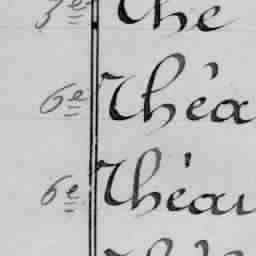 3e The
6e Théa
6e Théau